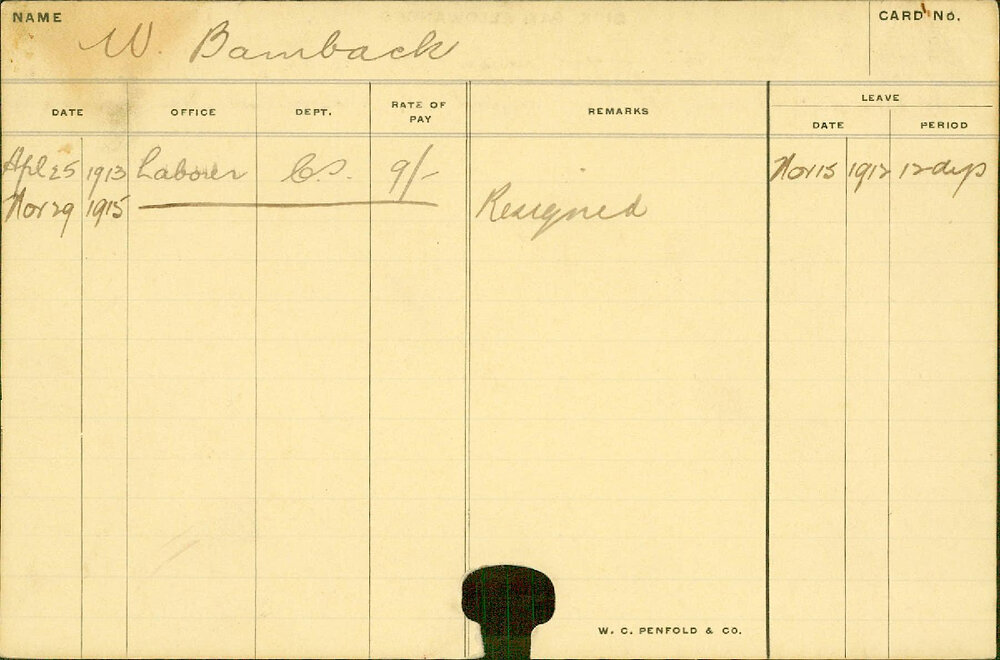 NAME
W. Bamback
CARD No.
DATE OFFICE DEPT. RATE OF PAY REMARKS LEAVE
DATE PERIOD
Apl 25 1913 Laborer C.S. 9/- Nov 15 1912 12 days
Nov 29 1915 Resigned
W. C. PENFOLD & CO.